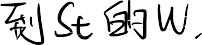 到St的W,